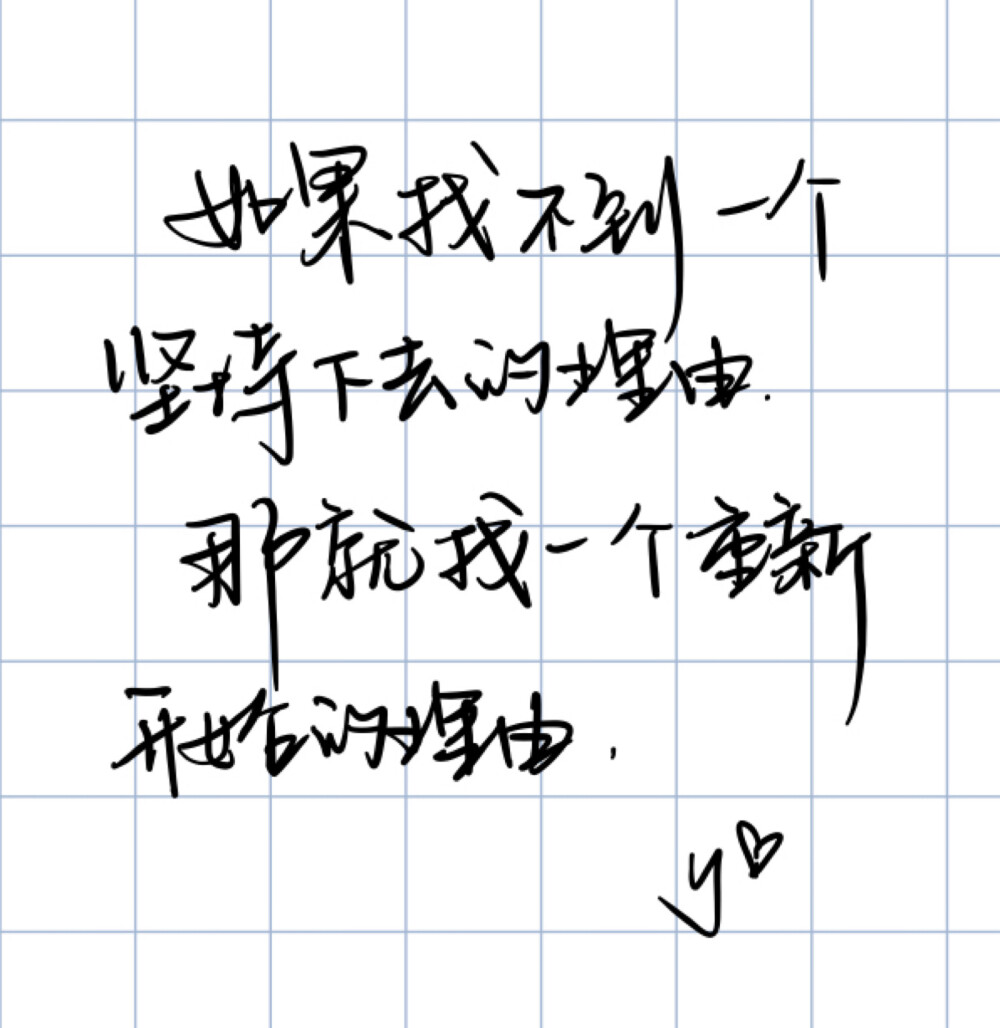 如果找不到一个
坚持下去的理由.
那就找一个重新
开始的理由.
y♡